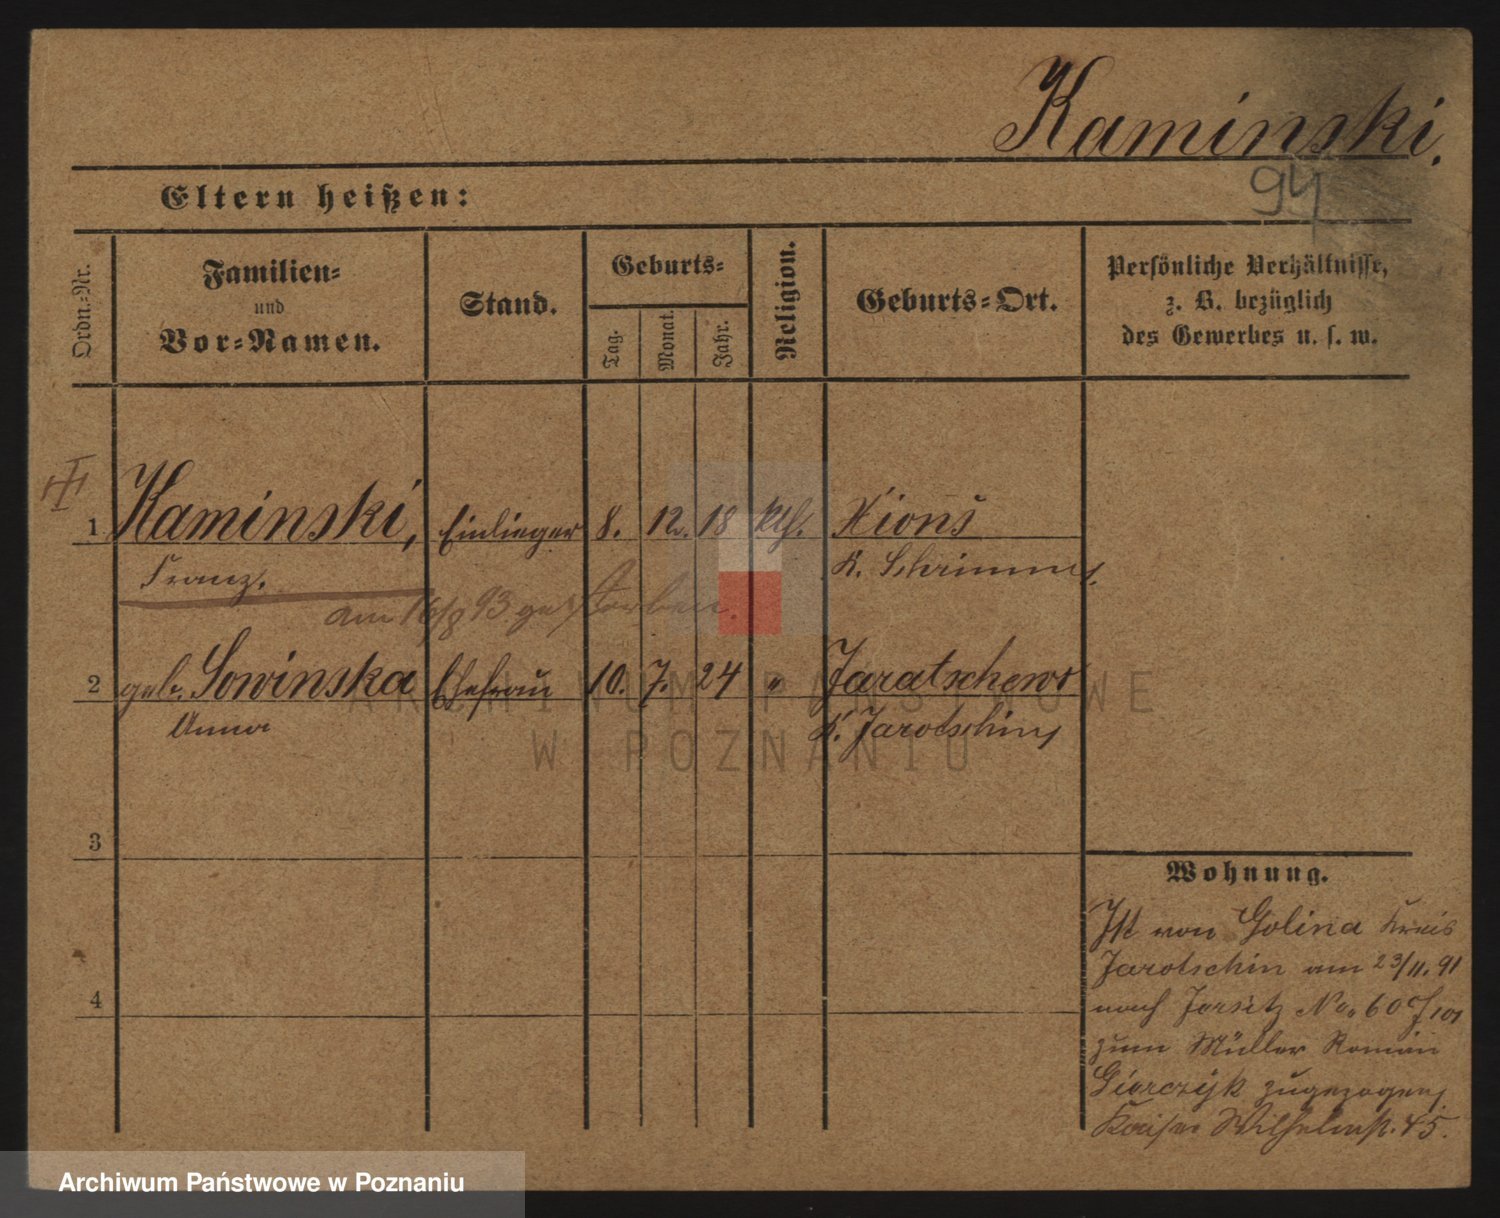 Kaminski.
94
Eltern heißen:
Ordn.=Nr.
Familien=
und
Vor=Namen.
Stand.
Geburts=
Tag.
Monat.
Jahr.
Religion.
Geburts=Ort.
Persönliche Verhältnisse,
z. B. bezüglich
des Gewerbes u. s. w.
1 Kaminski, Einlieger 8. 12. 18 kth. Xions
Franz. K. Schrimm
am 16/8 93 gestorben.
2 geb. Sowinska Ehefrau 10. 7. 24 " Jaratschewo
Anna K. Jarotschin
3
4
Wohnung.
Ist von Golina Kreis
Jarotschin am 23/11. 91
nach Jersitz No. 60
zum Müller Roman
zugezogen
Kaiser Wilhelmst. 45.
ARCHIWUM PAŃSTWOWE
W POZNANIU
Archiwum Państwowe w Poznaniu